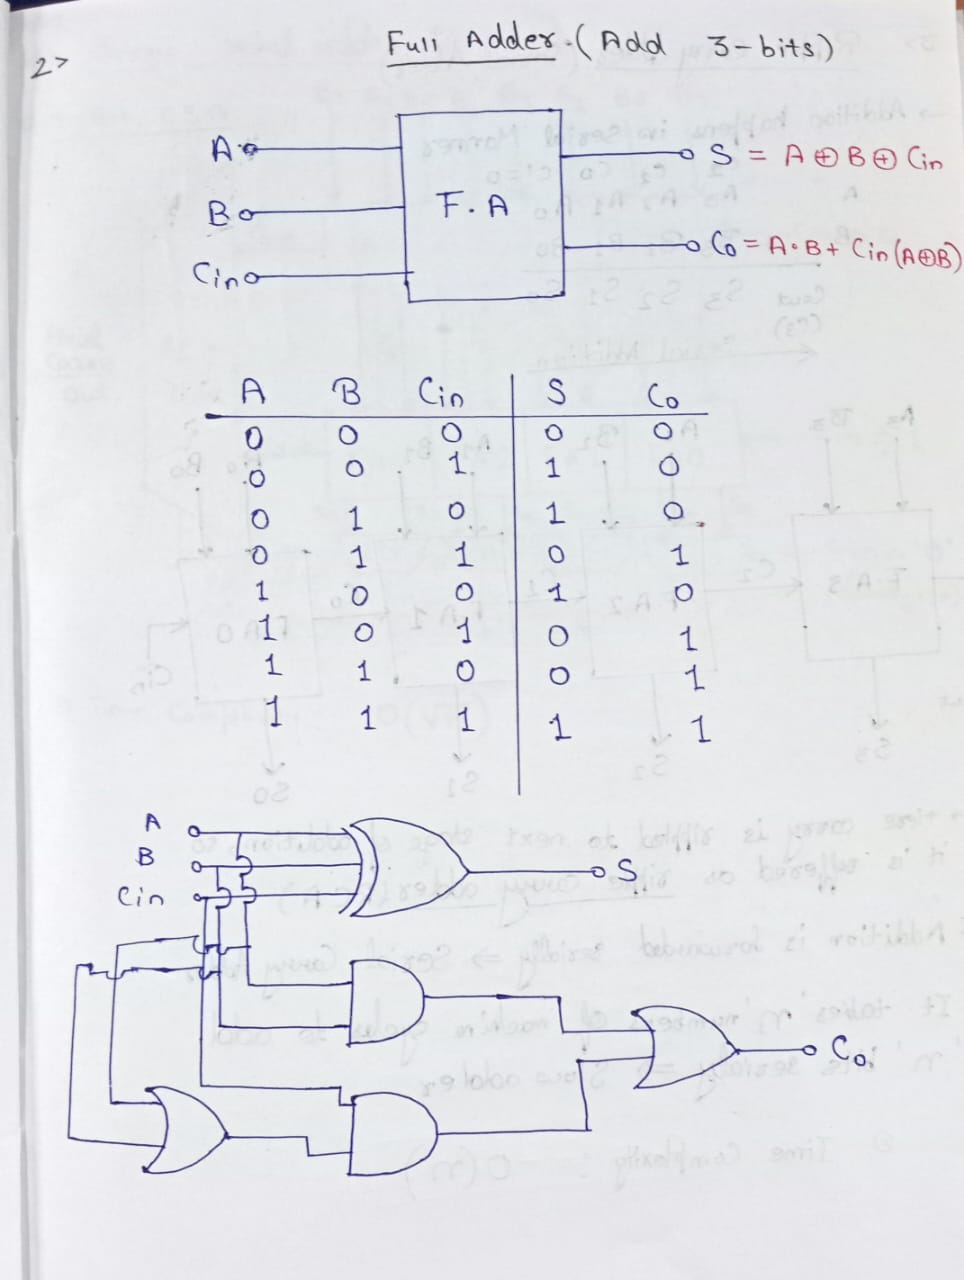 2>
Full Adder. (Add 3-bits)
A
B
Cin
F.A
S = A ⊕ B ⊕ Cin
Co = A·B + Cin (A⊕B)
A B Cin S Co
0 0 0 0 0
0 0 1 1 0
0 1 0 1 0
0 1 1 0 1
1 0 0 1 0
1 0 1 0 1
1 1 0 0 1
1 1 1 1 1
A
B
Cin
S
Co